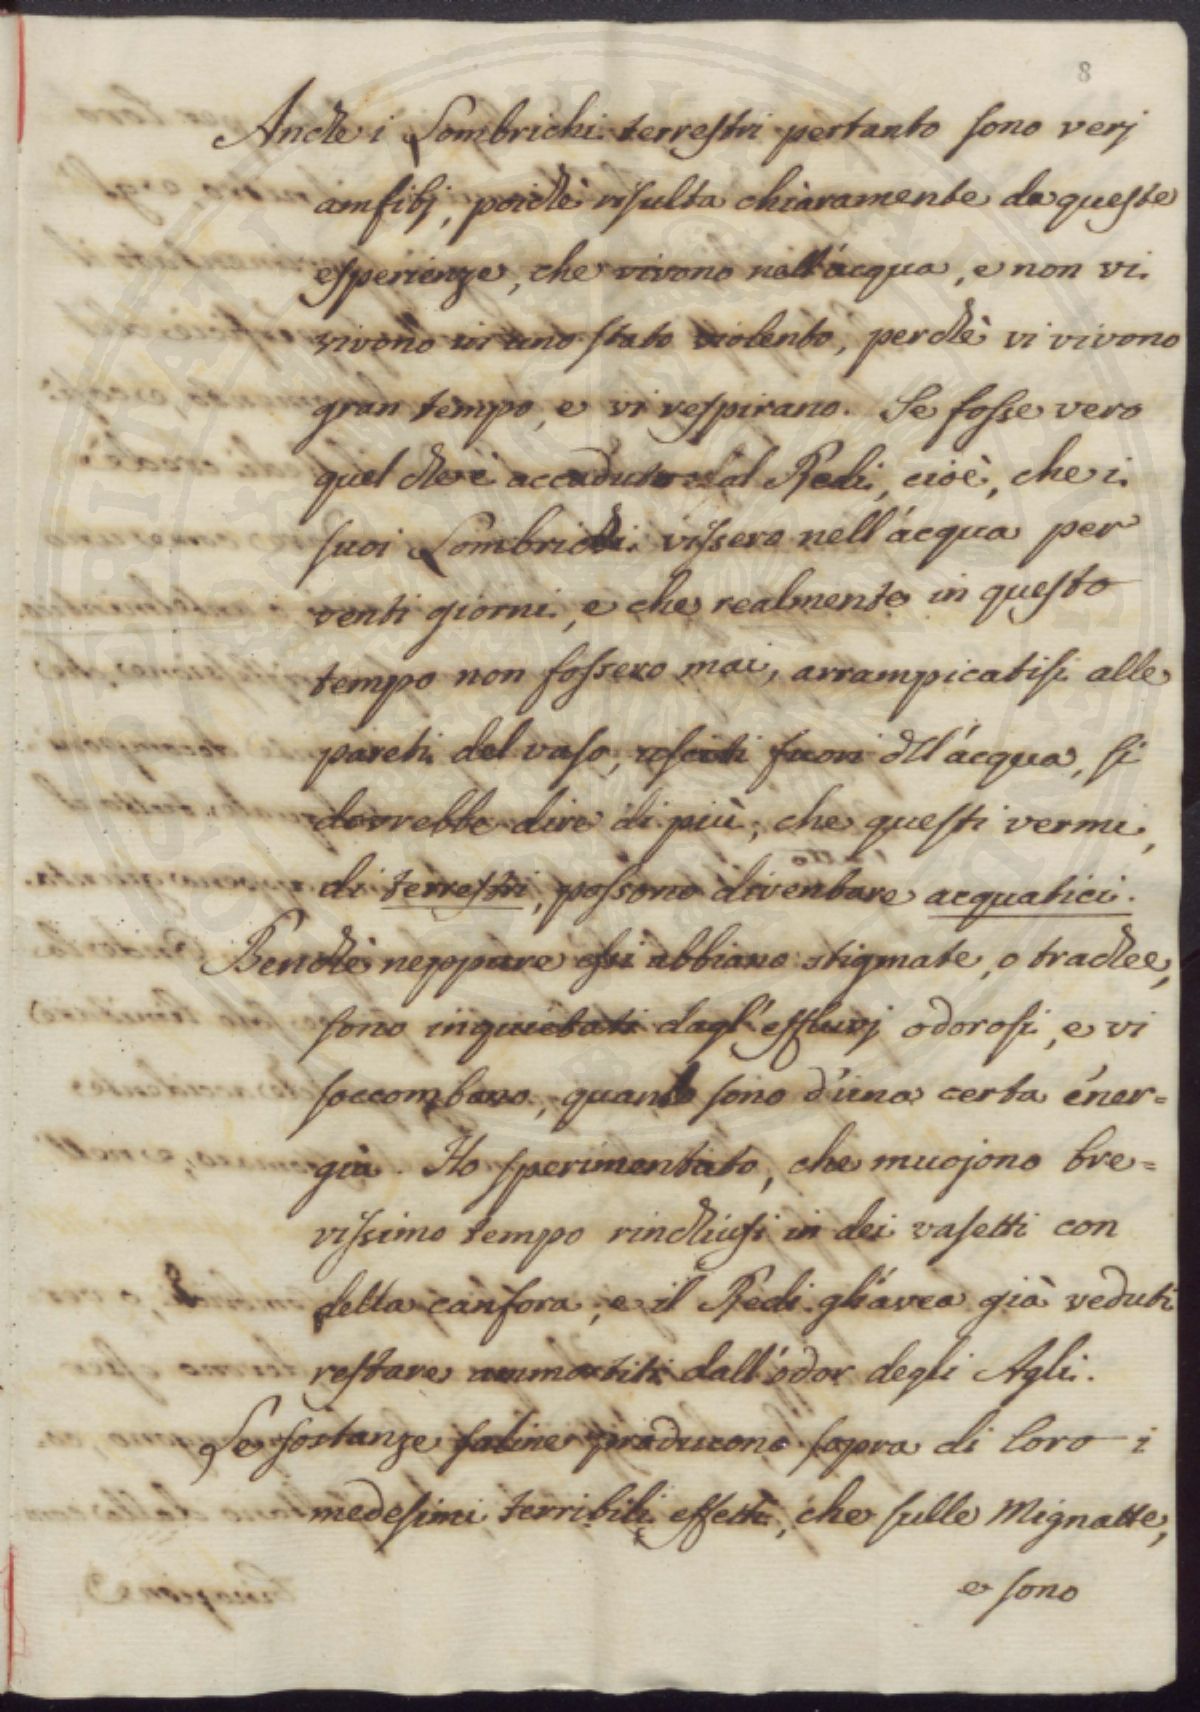 8
Anche i Lombrichi terrestri pertanto sono verj
amfibj, poichè risulta chiaramente da queste
esperienze, che vivono nell'acqua, e non vi
vivono in uno stato violento, perchè vi vivono
gran tempo, e vi respirano. Se fosse vero
quel che è accaduto al Redi, cioè, che i
suoi Lombrichi vissero nell'acqua per
venti giorni, e che realmente in questo
tempo non fossero mai, arrampicatisi alle
pareti del vaso, usciti fuori dell'acqua, si
dovrebbe dire di più, che questi vermi,
di terrestri, possono diventare acquatici.
Benchè neppure essi abbiano stigmate, o trachee,
sono inquietati dagl'effluvj odorosi, e vi
soccombano, quando sono d'una certa éner=
gia. Ho sperimentato, che muojono bre=
vissimo tempo rinchiusi in dei vasetti con
della canfora, e il Redi gl'avea già veduti
restare ammortiti dall'odor degli Agli.
Le sostanze saline producono sopra di loro i
medesimi terribili effetti, che sulle Mignatte,
e sono